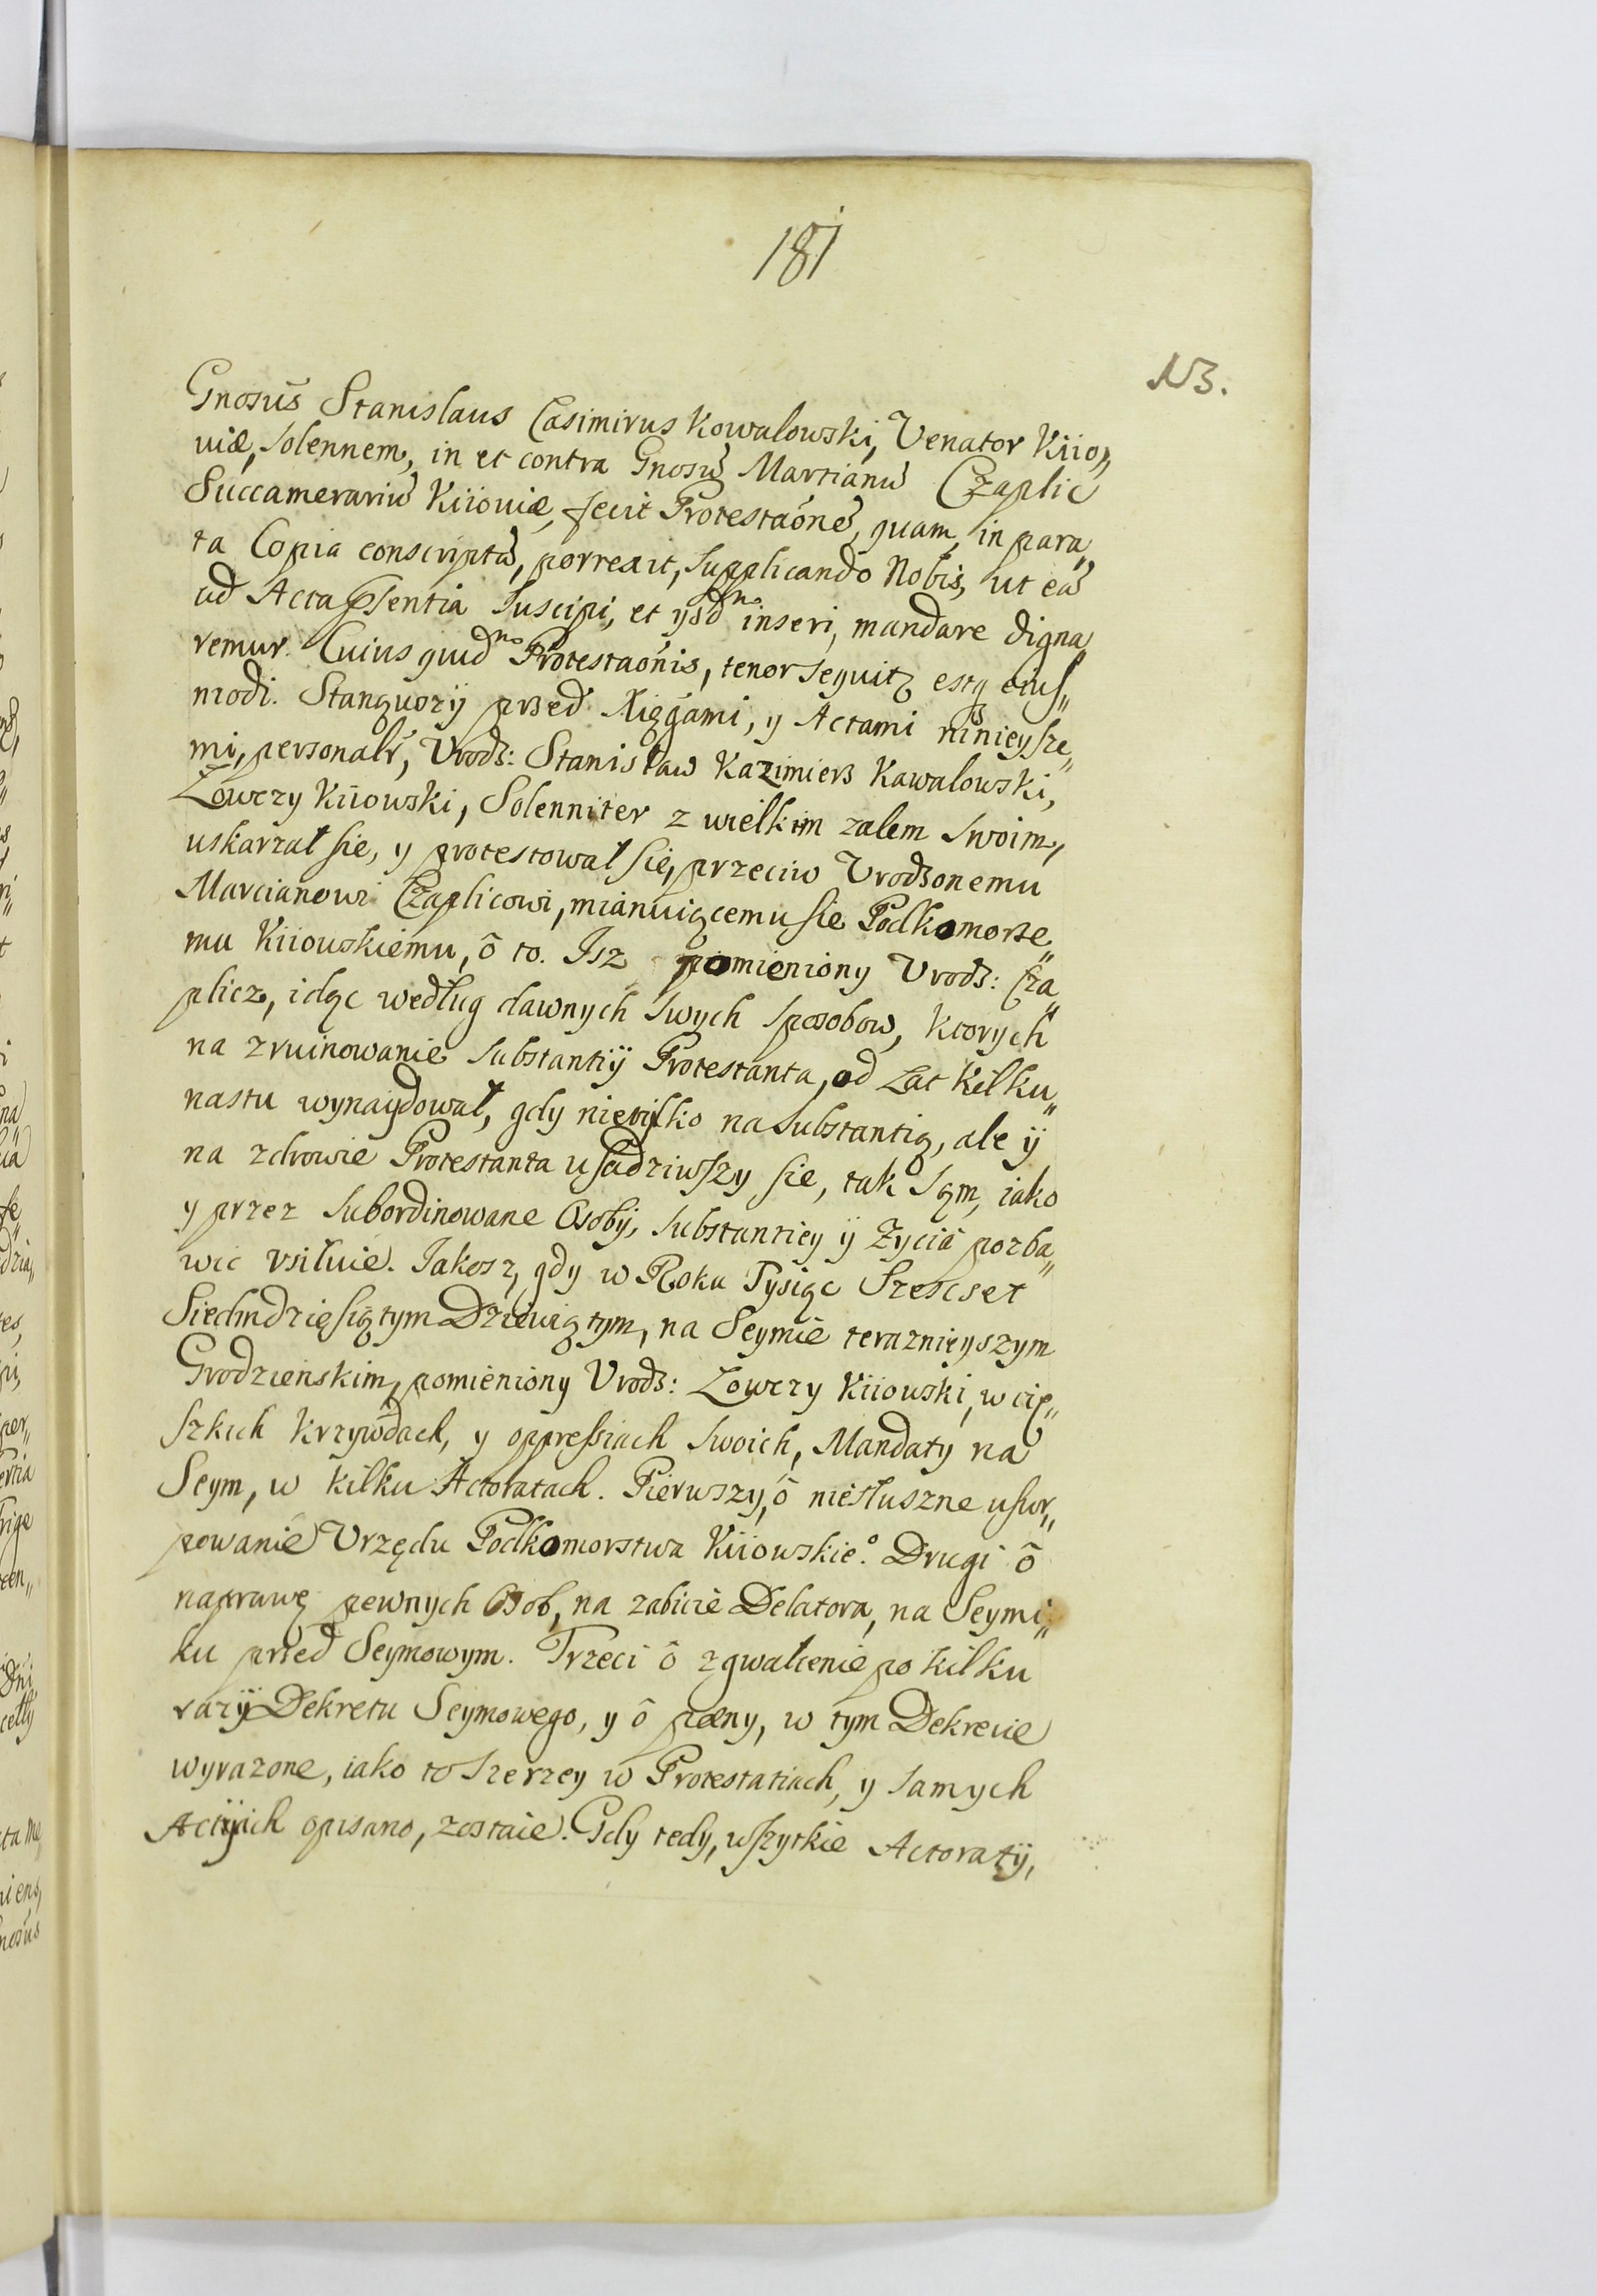 181
NB.
Gnosus Stanislaus Casimirus Kowalowski, Venator Kiio„
uiæ, Solennem, in et contra Gnosũ Martianũ Czaplic
Succamerariũ Kiiouiæ, fecit Protestaõnẽ, quam, in para„
ta Copia conscriptã, porrexit, Supplicando Nobis, ut eã
ad Acta pŝentia Suscipi, et ysdᵐ inseri, mandare digna„
remur. Cuius quidᵐ Protestaõnis, tenor sequitꝫ estq eius„
modi. Stanąwszÿ przed Xięgami, y Actami ninieysze„
mi, personalr̃, Vrodz: Stanisław Kazimierz Kawalowski,
Łowczy Kiiowski, Solenniter z wielkim zalem Swoim,
uskarzał sie, y protestował się, przeciw Vrodzonemu
Marcianowi Czaplicowi, mianuiącemu sie Podkomorze„
mu Kiiowskiemu, ô to. Isz pomieniony Vrodz: Cza„
plicz, idąc według dawnych Swych Sposobow, ktorych
na zruinowanie Substantiÿ Protestanta, od Lat kilku„
nastu wynaydował, gdy nietylko na Substantią, ale ÿ
na zdrowie Protestanta usadziwszy sie, tak Sąm, iako
y przez Subordinowane Osobÿ, Substantiey ÿ Zycia pozba„
wic vsiłuie. Iakosz, gdy w Roku Tysiąc Szescset
Siedmdziesiątym Dziewiątym, na Seymie teraznieyszym
Grodzienskim, pomieniony Vrodz: Łowczy Kiiowski, w cię„
szkich krzywdach, y oppressiach Swoich, Mandaty na
Seym, w kilku Actoratach. Pierwszy, ô niesłuszne usur„
powanie Vrzędu Podkomorstwa Kiiowskie.° Drugi ô
naprawę pewnych Osob, na zabicie Delatora, na Seymi„
ku przed Seymowym. Trzeci ô zgwałcenie po kilku
razÿ Dekretu Seymowego, y ô pæny, w tym Dekrecie
wyrazone, iako to Szerzey w Protestatiach, y Samych
Actÿach opisano, zostaie. Gdy tedy, wszytkie Actoratÿ,